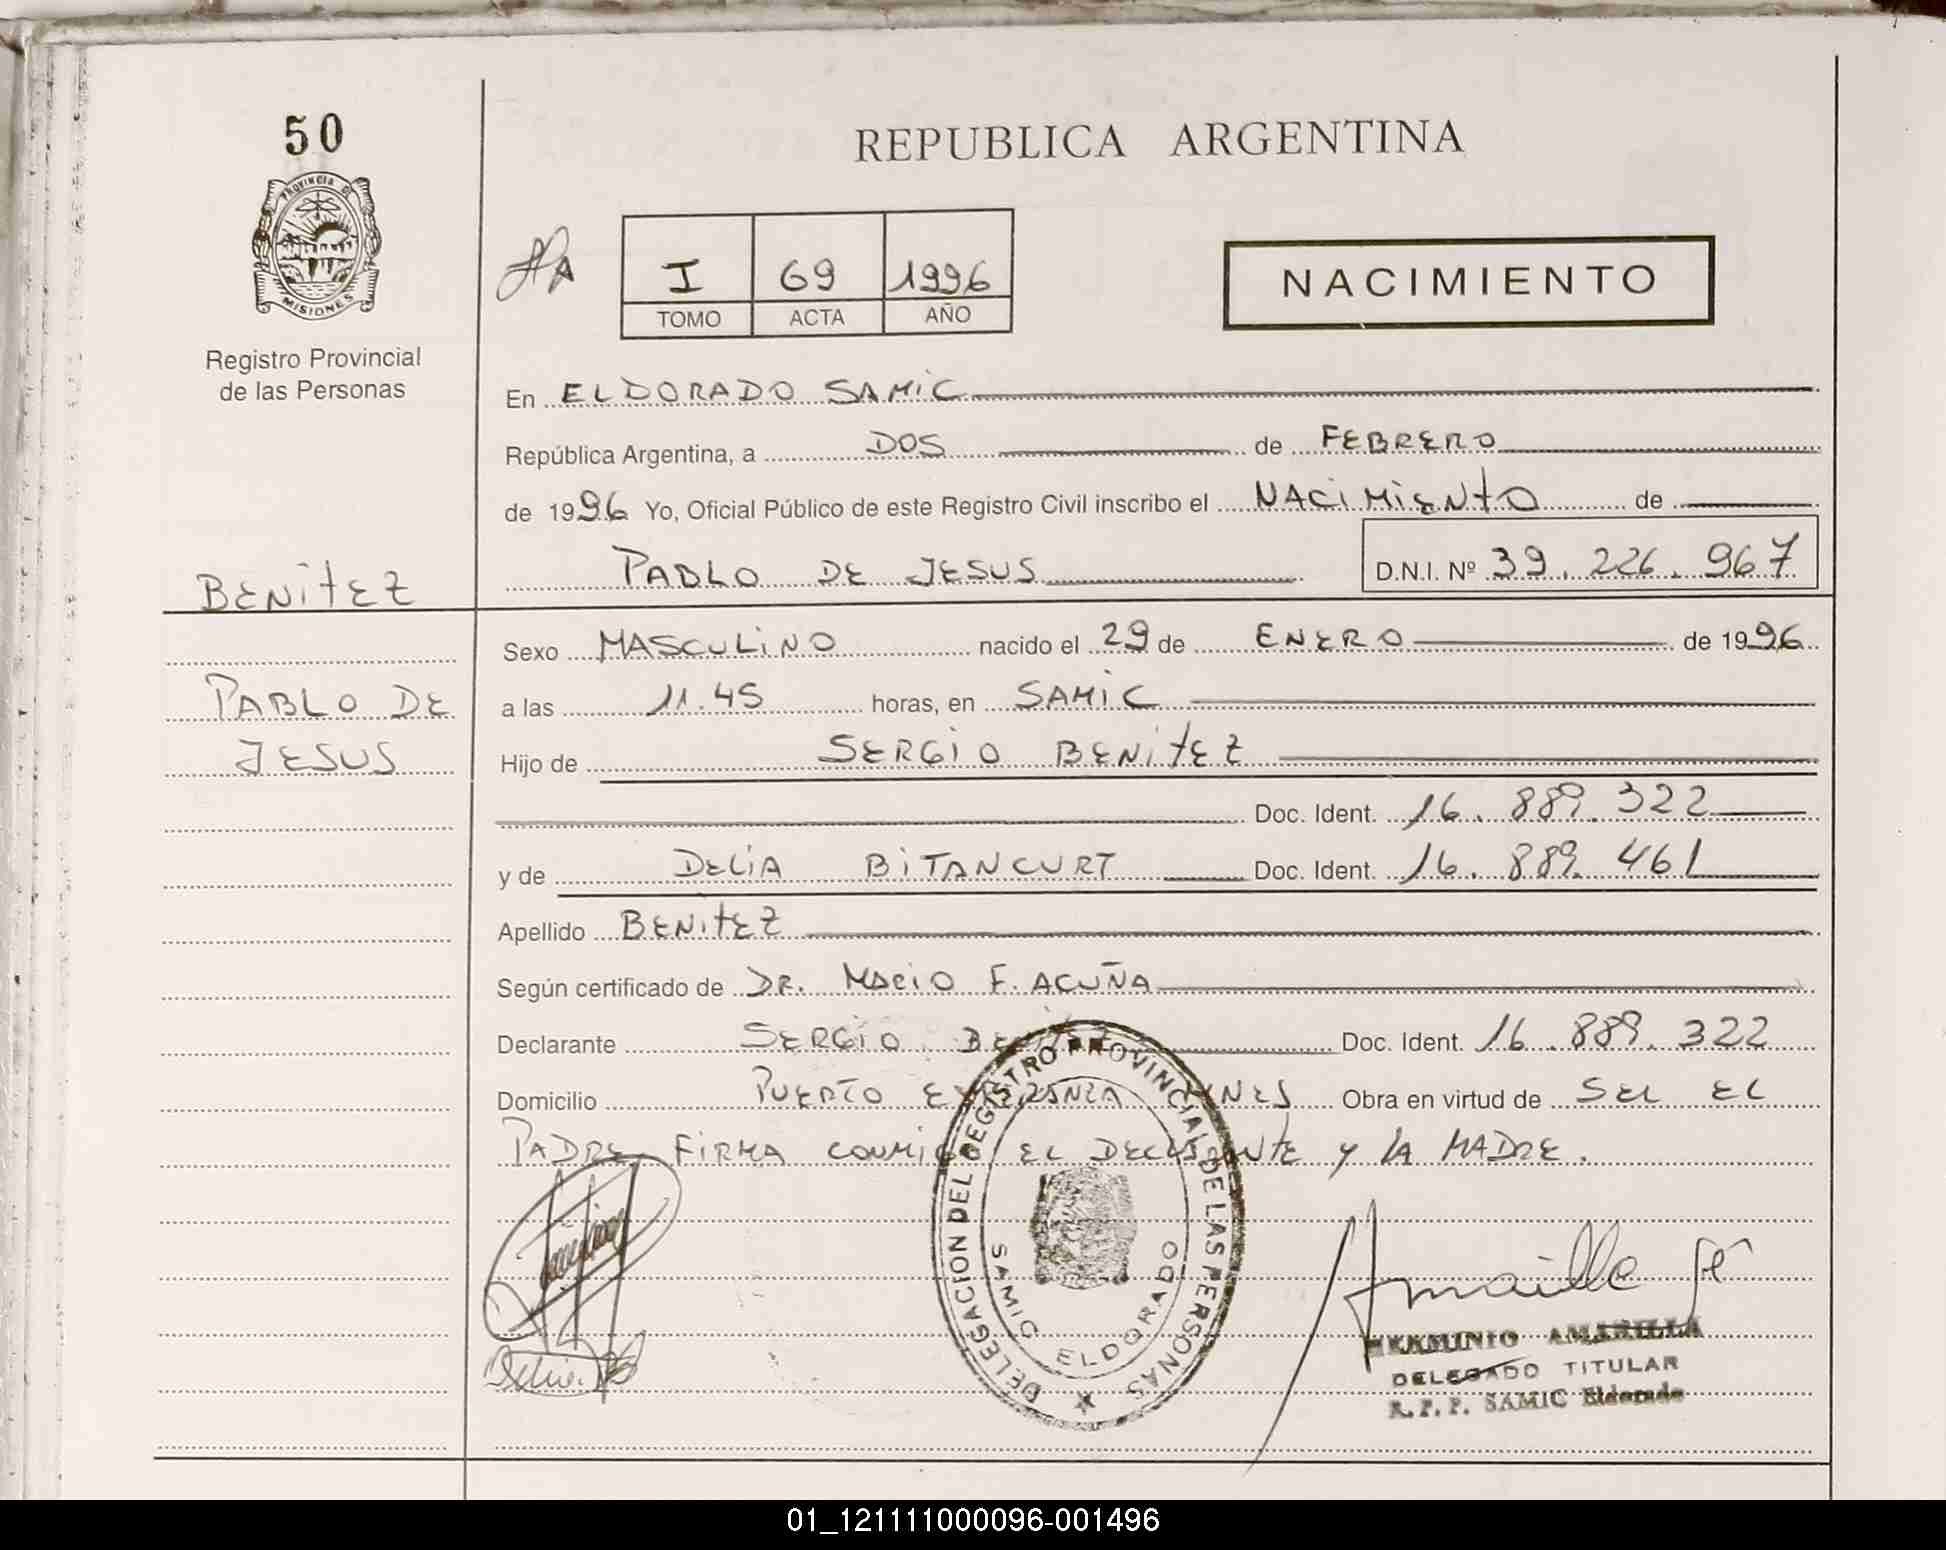 50
REPUBLICA ARGENTINA
PROVINCIA DE
MISIONES
Registro Provincial
de las Personas
I 69 1996
TOMO ACTA AÑO
NACIMIENTO
En ELDORADO SAMIC
República Argentina, a DOS de FEBRERO
de 1996 Yo, Oficial Público de este Registro Civil inscribo el NACIMIENTO de
PABLO DE JESUS D.N.I. Nº 39.226.967
BENITEZ
PABLO DE
JESUS
Sexo MASCULINO nacido el 29 de ENERO de 1996
a las 11.45 horas, en SAMIC
Hijo de SERGIO BENITEZ
Doc. Ident. 16.889.322
y de DELIA BITANCURT Doc. Ident. 16.889.461
Apellido BENITEZ
Según certificado de DR. MARIO F. ACUÑA
Declarante SERGIO BENITEZ Doc. Ident. 16.889.322
Domicilio PUERTO ESPERANZA Obra en virtud de SER EL
PADRE, FIRMA CONMIGO EL DECLARANTE Y LA MADRE.
DELEGACION DEL REGISTRO PROVINCIAL DE LAS PERSONAS
SAMIC ELDORADO
Amarilla
HERMINIO AMARILLA
DELEGADO TITULAR
R.P.P. SAMIC Eldorado
01_121111000096-001496